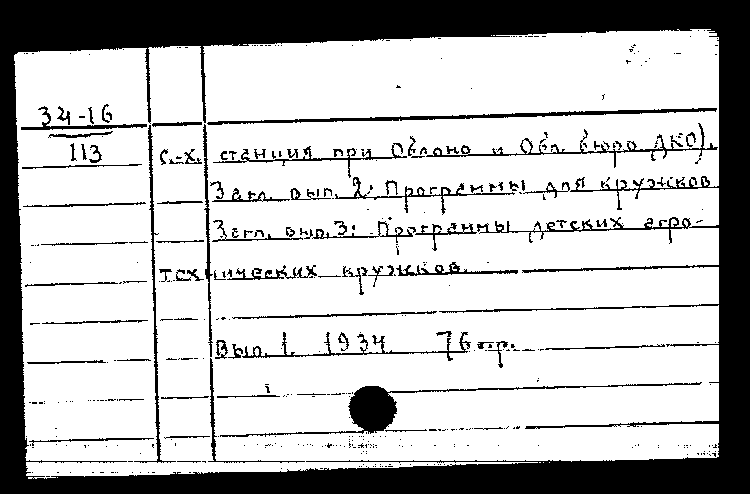 34-16
113
с.-х. станция при Облоно и Обл. бюро ДКО).
Загл. вып. 2: Программы для кружков
Загл. вып. 3: Программы детских агро-
технических кружков.
Вып. 1. 1934. 76 стр.